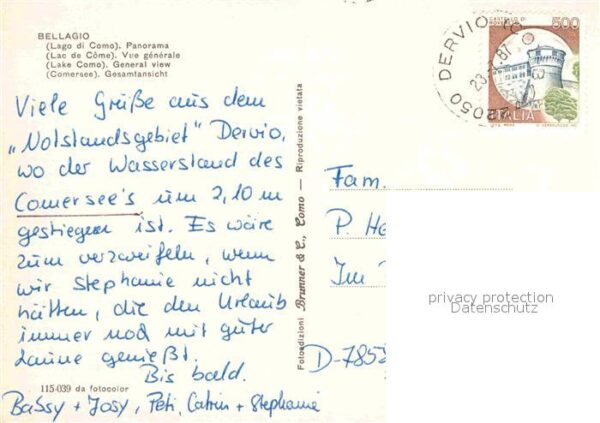 BELLAGIO
(Lago di Como). Panorama
(Lac de Côme). Vue générale
(Lake Como). General view
(Comersee). Gesamtansicht
Viele Grüße aus dem
„Notstandsgebiet" Dervio,
wo der Wasserstand des
Comersee's um 2,10 m
gestiegen ist. Es wäre
zum verzweifeln, wenn
wir Stephanie nicht
hätten, die den Urlaub
immer noch mit guter
Laune genießt.
Bis bald.
115-039 da fotocolor
Bassy + Josy, Peti, Catrin + Stephanie
Fotoedizioni Brunner & C., Como — Riproduzione vietata
CASTELLO DI
500
ITALIA
DERVIO (CO)
Fam.
P. He
Im
D-785
privacy protection
Datenschutz